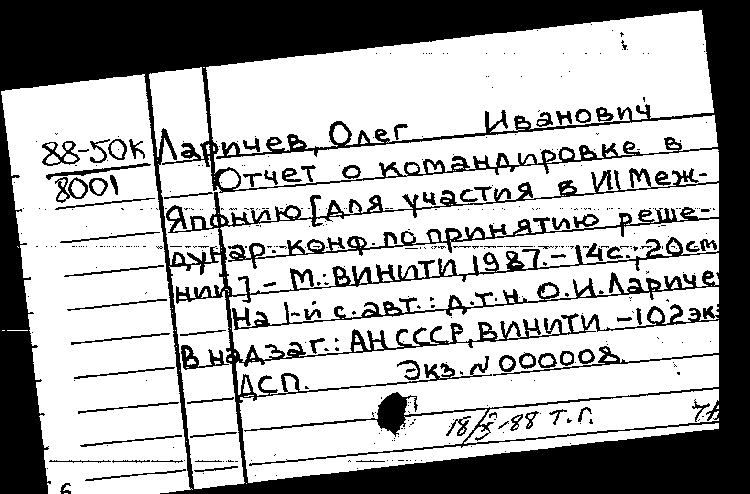 88-50К Ларичев, Олег Иванович
8001 Отчет о командировке в
Японию [для участия в VII Меж-
дунар. конф. по принятию реше-
ний]. - М.: ВИНИТИ, 1987. - 14с.; 20см
На 1-й с. авт.: д.т.н. О.И. Ларичев
В надзаг.: АН СССР, ВИНИТИ. - 102 экз
ДСП. Экз. N 000008.
88 Т.Г.
6